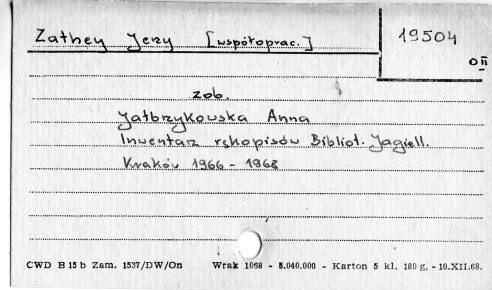 Zathey Jerzy [współoprac.]
19504
OII
zob.
Jałbrzykowska Anna
Inwentarz rękopisów Bibliot. Jagiell.
Kraków 1966 - 1968
CWD B 15 b Zam. 1537/DW/On Wrak 1068 - 5.040.000 - Karton 5 kl. 180 g. - 10.XII.68.